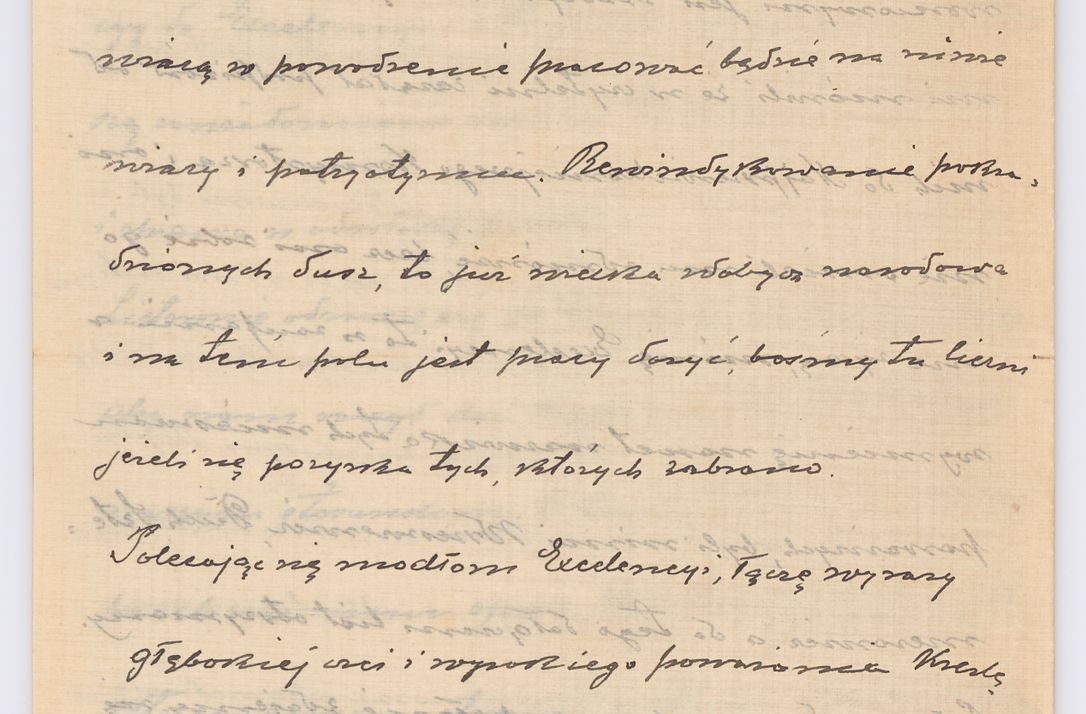 wiarą w powodzenie pracować będzie na niwie
wiary i patryotyzmu. Rewindykowanie pokra-
dzionych dusz, to już wielka zdobycz narodowa
i na tem polu jest pracy dosyć, bośmy tu liczni
jeżeli się pozyska tych, których zabrano.
Polecając się modłom Excelencyi, łączę wyrazy
głębokiej czci i wysokiego poważania Kreślę